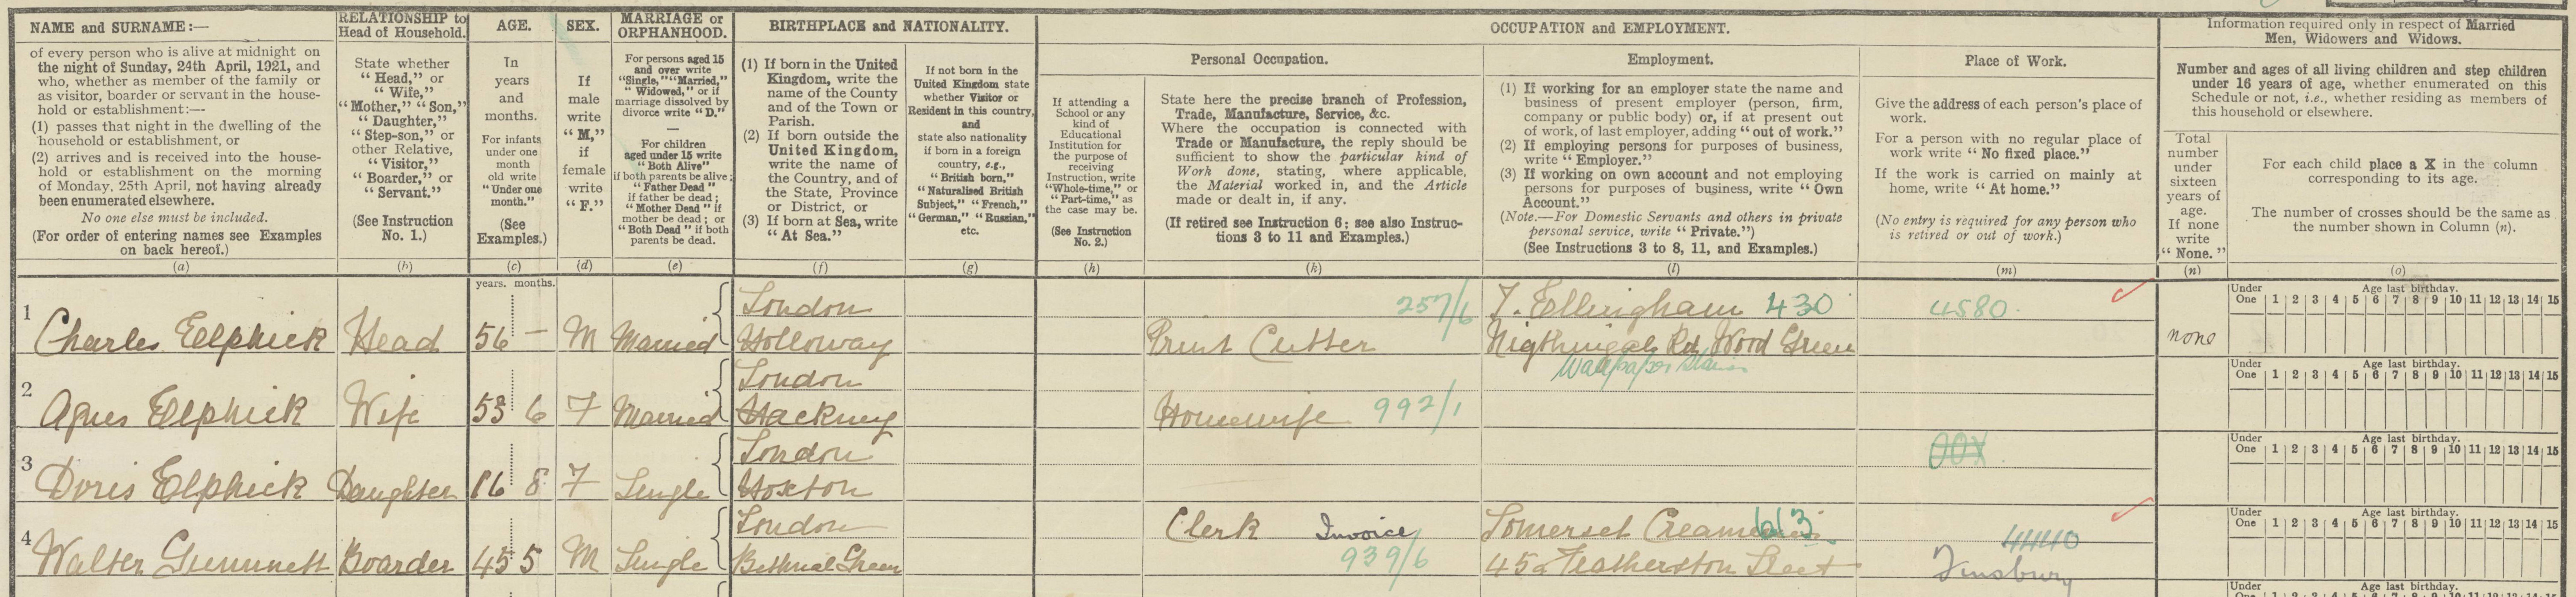 NAME and SURNAME:—
of every person who is alive at midnight on
the night of Sunday, 24th April, 1921, and
who, whether as member of the family or
as visitor, boarder or servant in the house-
hold or establishment:—
(1) passes that night in the dwelling of the
household or establishment, or
(2) arrives and is received into the house-
hold or establishment on the morning
of Monday, 25th April, not having already
been enumerated elsewhere.
No one else must be included.
(For order of entering names see Examples
on back hereof.)
(a)
RELATIONSHIP to
Head of Household.
State whether
"Head," or
"Wife,"
"Mother," "Son,"
"Daughter,"
"Step-son," or
other Relative,
"Visitor,"
"Boarder," or
"Servant."
(See Instruction
No. 1.)
(b)
AGE.
In
years
and
months.
For infants
under one
month
old write
"Under one
month."
(See
Examples.)
(c)
SEX.
If
male
write
"M,"
if
female
write
"F."
(d)
MARRIAGE or
ORPHANHOOD.
For persons aged 15
and over write
"Single," "Married,"
"Widowed," or if
marriage dissolved by
divorce write "D."
—
For children
aged under 15 write
"Both Alive"
if both parents be alive;
"Father Dead"
if father be dead;
"Mother Dead" if
mother be dead; or
"Both Dead" if both
parents be dead.
(e)
BIRTHPLACE and NATIONALITY.
(1) If born in the United
Kingdom, write the
name of the County
and of the Town or
Parish.
(2) If born outside the
United Kingdom,
write the name of
the Country, and of
the State, Province
or District, or
(3) If born at Sea, write
"At Sea."
(f)
If not born in the
United Kingdom state
whether Visitor or
Resident in this country,
and
state also nationality
if born in a foreign
country, e.g.,
"British born,"
"Naturalised British
Subject," "French,"
"German," "Russian,"
etc.
(g)
OCCUPATION and EMPLOYMENT.
Personal Occupation.
If attending a
School or any
kind of
Educational
Institution for
the purpose of
receiving
Instruction, write
"Whole-time," or
"Part-time," as
the case may be.
(See Instruction
No. 2.)
(h)
State here the precise branch of Profession,
Trade, Manufacture, Service, &c.
Where the occupation is connected with
Trade or Manufacture, the reply should be
sufficient to show the particular kind of
Work done, stating, where applicable,
the Material worked in, and the Article
made or dealt in, if any.
(If retired see Instruction 6; see also Instruc-
tions 3 to 11 and Examples.)
(k)
Employment.
(1) If working for an employer state the name and
business of present employer (person, firm,
company or public body) or, if at present out
of work, of last employer, adding "out of work."
(2) If employing persons for purposes of business,
write "Employer."
(3) If working on own account and not employing
persons for purposes of business, write "Own
Account."
(Note.—For Domestic Servants and others in private
personal service, write "Private.")
(See Instructions 3 to 8, 11, and Examples.)
(l)
Place of Work.
Give the address of each person's place of
work.
For a person with no regular place of
work write "No fixed place."
If the work is carried on mainly at
home, write "At home."
(No entry is required for any person who
is retired or out of work.)
(m)
Information required only in respect of Married
Men, Widowers and Widows.
Number and ages of all living children and step children
under 16 years of age, whether enumerated on this
Schedule or not, i.e., whether residing as members of
this household or elsewhere.
Total
number
under
sixteen
years of
age.
If none
write
"None."
(n)
For each child place a X in the column
corresponding to its age.
The number of crosses should be the same as
the number shown in Column (n).
(o)
years. months.
1
Charles Elphick Head 56 – M Married
London
Holloway
257/6
Print Cutter
T. Ellingham 430
Nigthingale Rd Wood Green
Wallpaper
4580
none
Under One Age last birthday.
1 2 3 4 5 6 7 8 9 10 11 12 13 14 15
2
Agnes Elphick Wife 53 6 F Married
London
Hackney
Homewife 992/1
Under One Age last birthday.
1 2 3 4 5 6 7 8 9 10 11 12 13 14 15
3
Doris Elphick Daughter 16 8 F Single
London
Hoxton
Under One Age last birthday.
1 2 3 4 5 6 7 8 9 10 11 12 13 14 15
4
Walter Gummett Boarder 45 5 M Single
London
Bethnal Green
Clerk Invoice
939/6
Somerset 613
45a Featherston Street
4440
Finsbury
Under One Age last birthday.
1 2 3 4 5 6 7 8 9 10 11 12 13 14 15
Under Age last birthday.